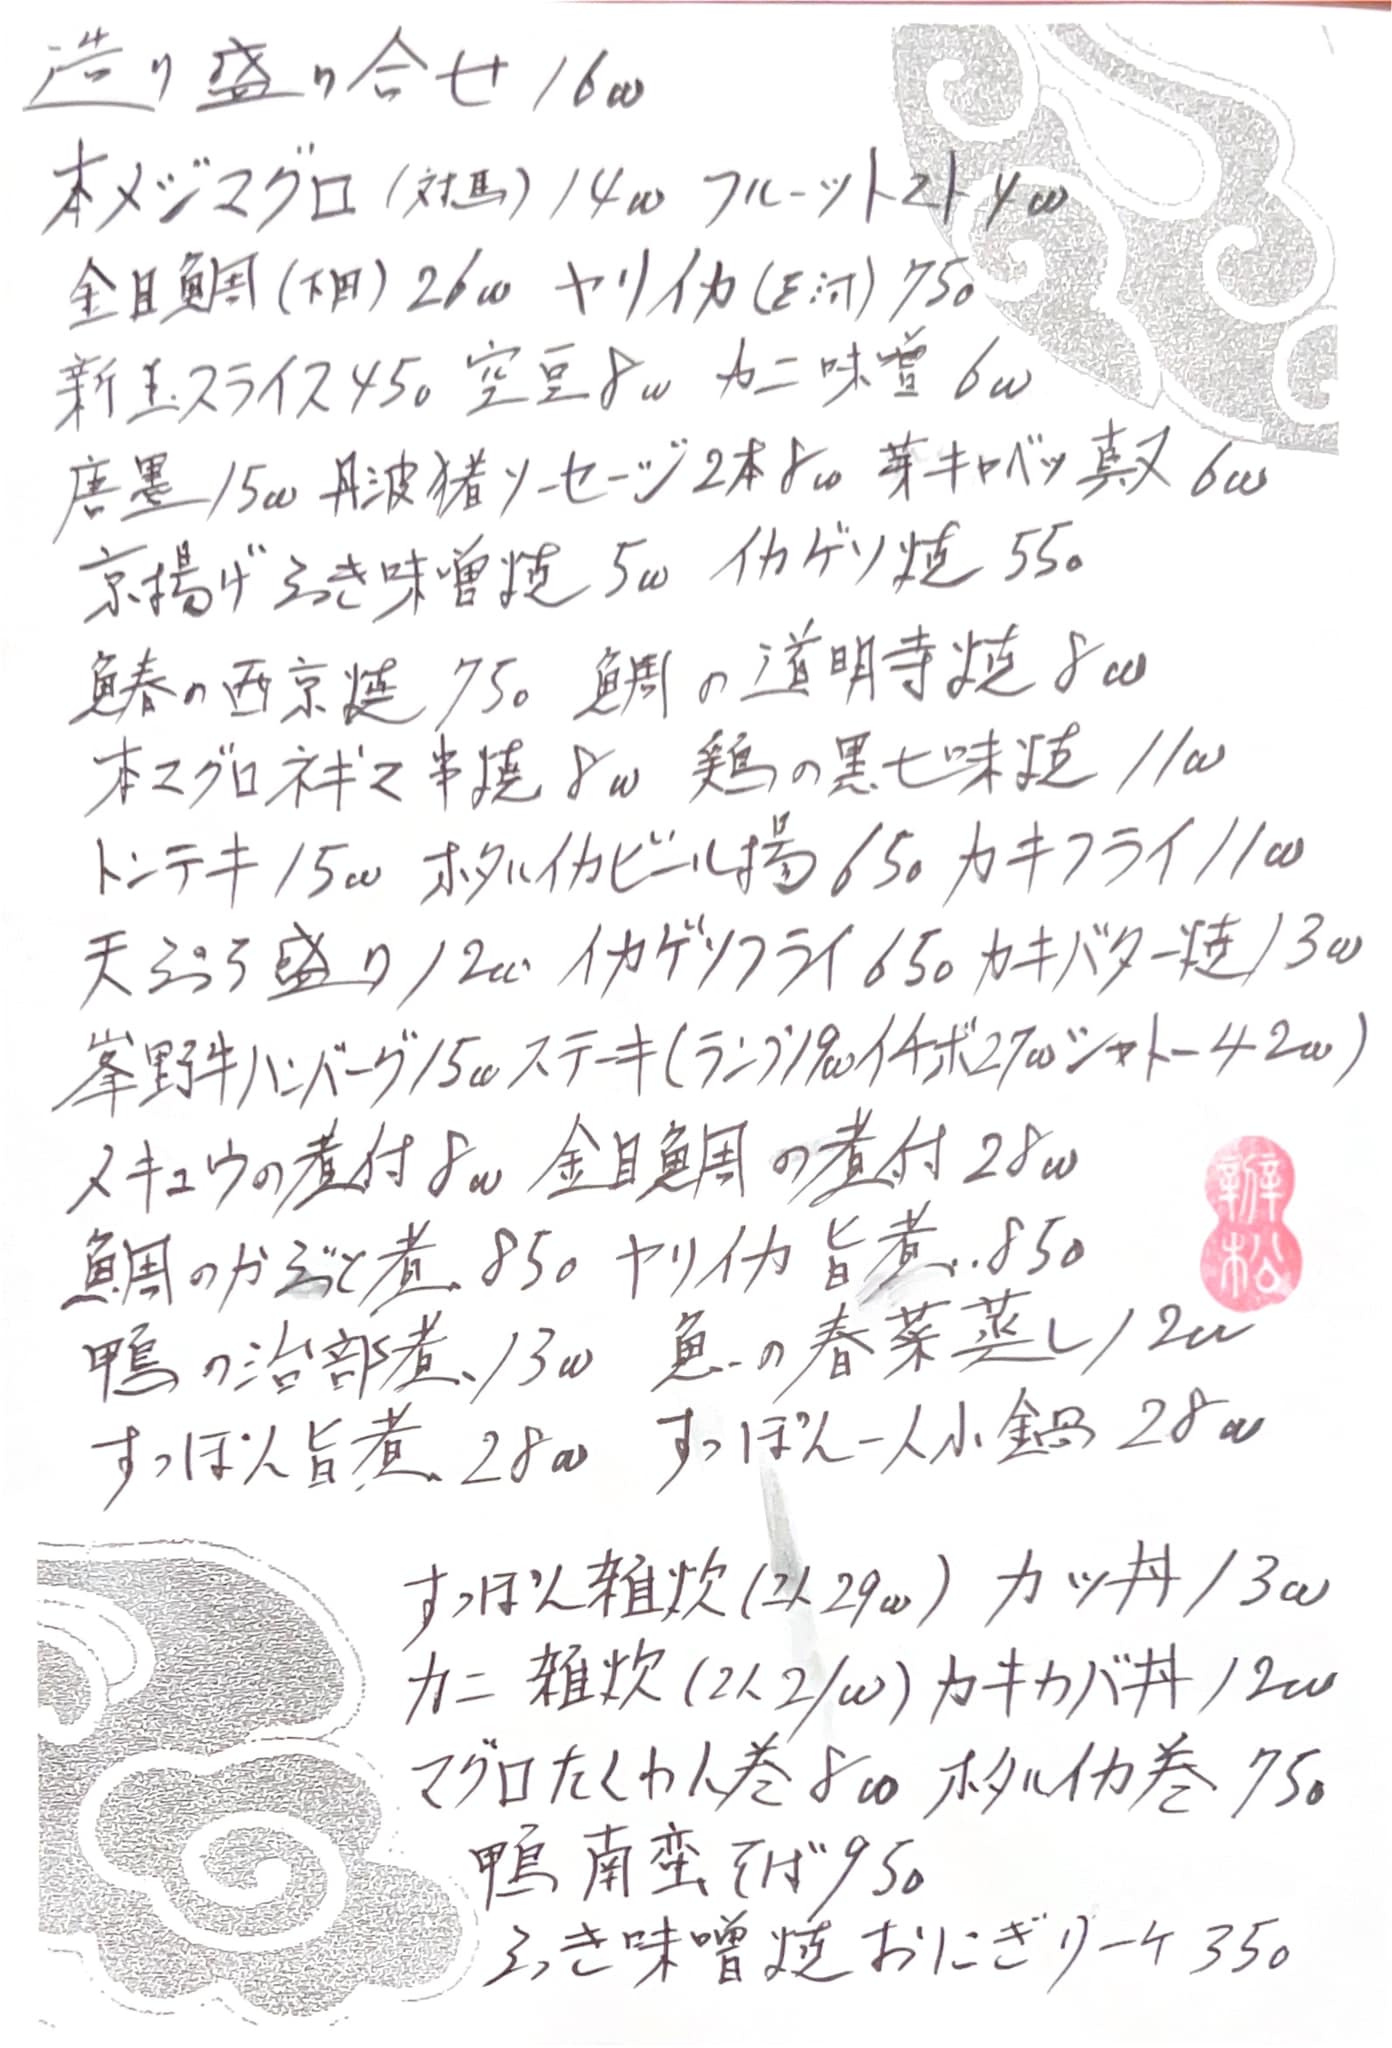 造り盛り合せ 1600
本メジマグロ(対馬)1400 フルーツトマト400
金目鯛(下田)2600 ヤリイカ(三河)750
新玉スライス450 空豆800 カニ味噌 600
唐墨1500 丹波猪ソーセージ2本800 芽キャベツ真丈 600
京揚げふき味噌焼 500 イカゲソ焼 550
鰆の西京焼 750 鯛の道明寺焼 800
本マグロネギマ串焼 800 鶏の黒七味焼 1100
トンテキ1500 ホタルイカビール揚650 カキフライ1100
天ぷら盛り1200 イカゲソフライ650 カキバター焼1300
峯野牛ハンバーグ1500 ステーキ(ランプ1900イチボ2700シャトー4200)
メキュウの煮付800 金目鯛の煮付2800
鯛のかぶと煮 850 ヤリイカ旨煮 850
鴨の治部煮 1300 魚の春菜蒸し1200
すっぽん旨煮 2800 すっぽん一人小鍋 2800
すっぽん雑炊(2人2900) カツ丼1300
カニ雑炊(2人2100)カキカバ丼1200
マグロたくわん巻800 ホタルイカ巻 750
鴨南蛮そば950
ふき味噌焼おにぎり一ケ350
辨松